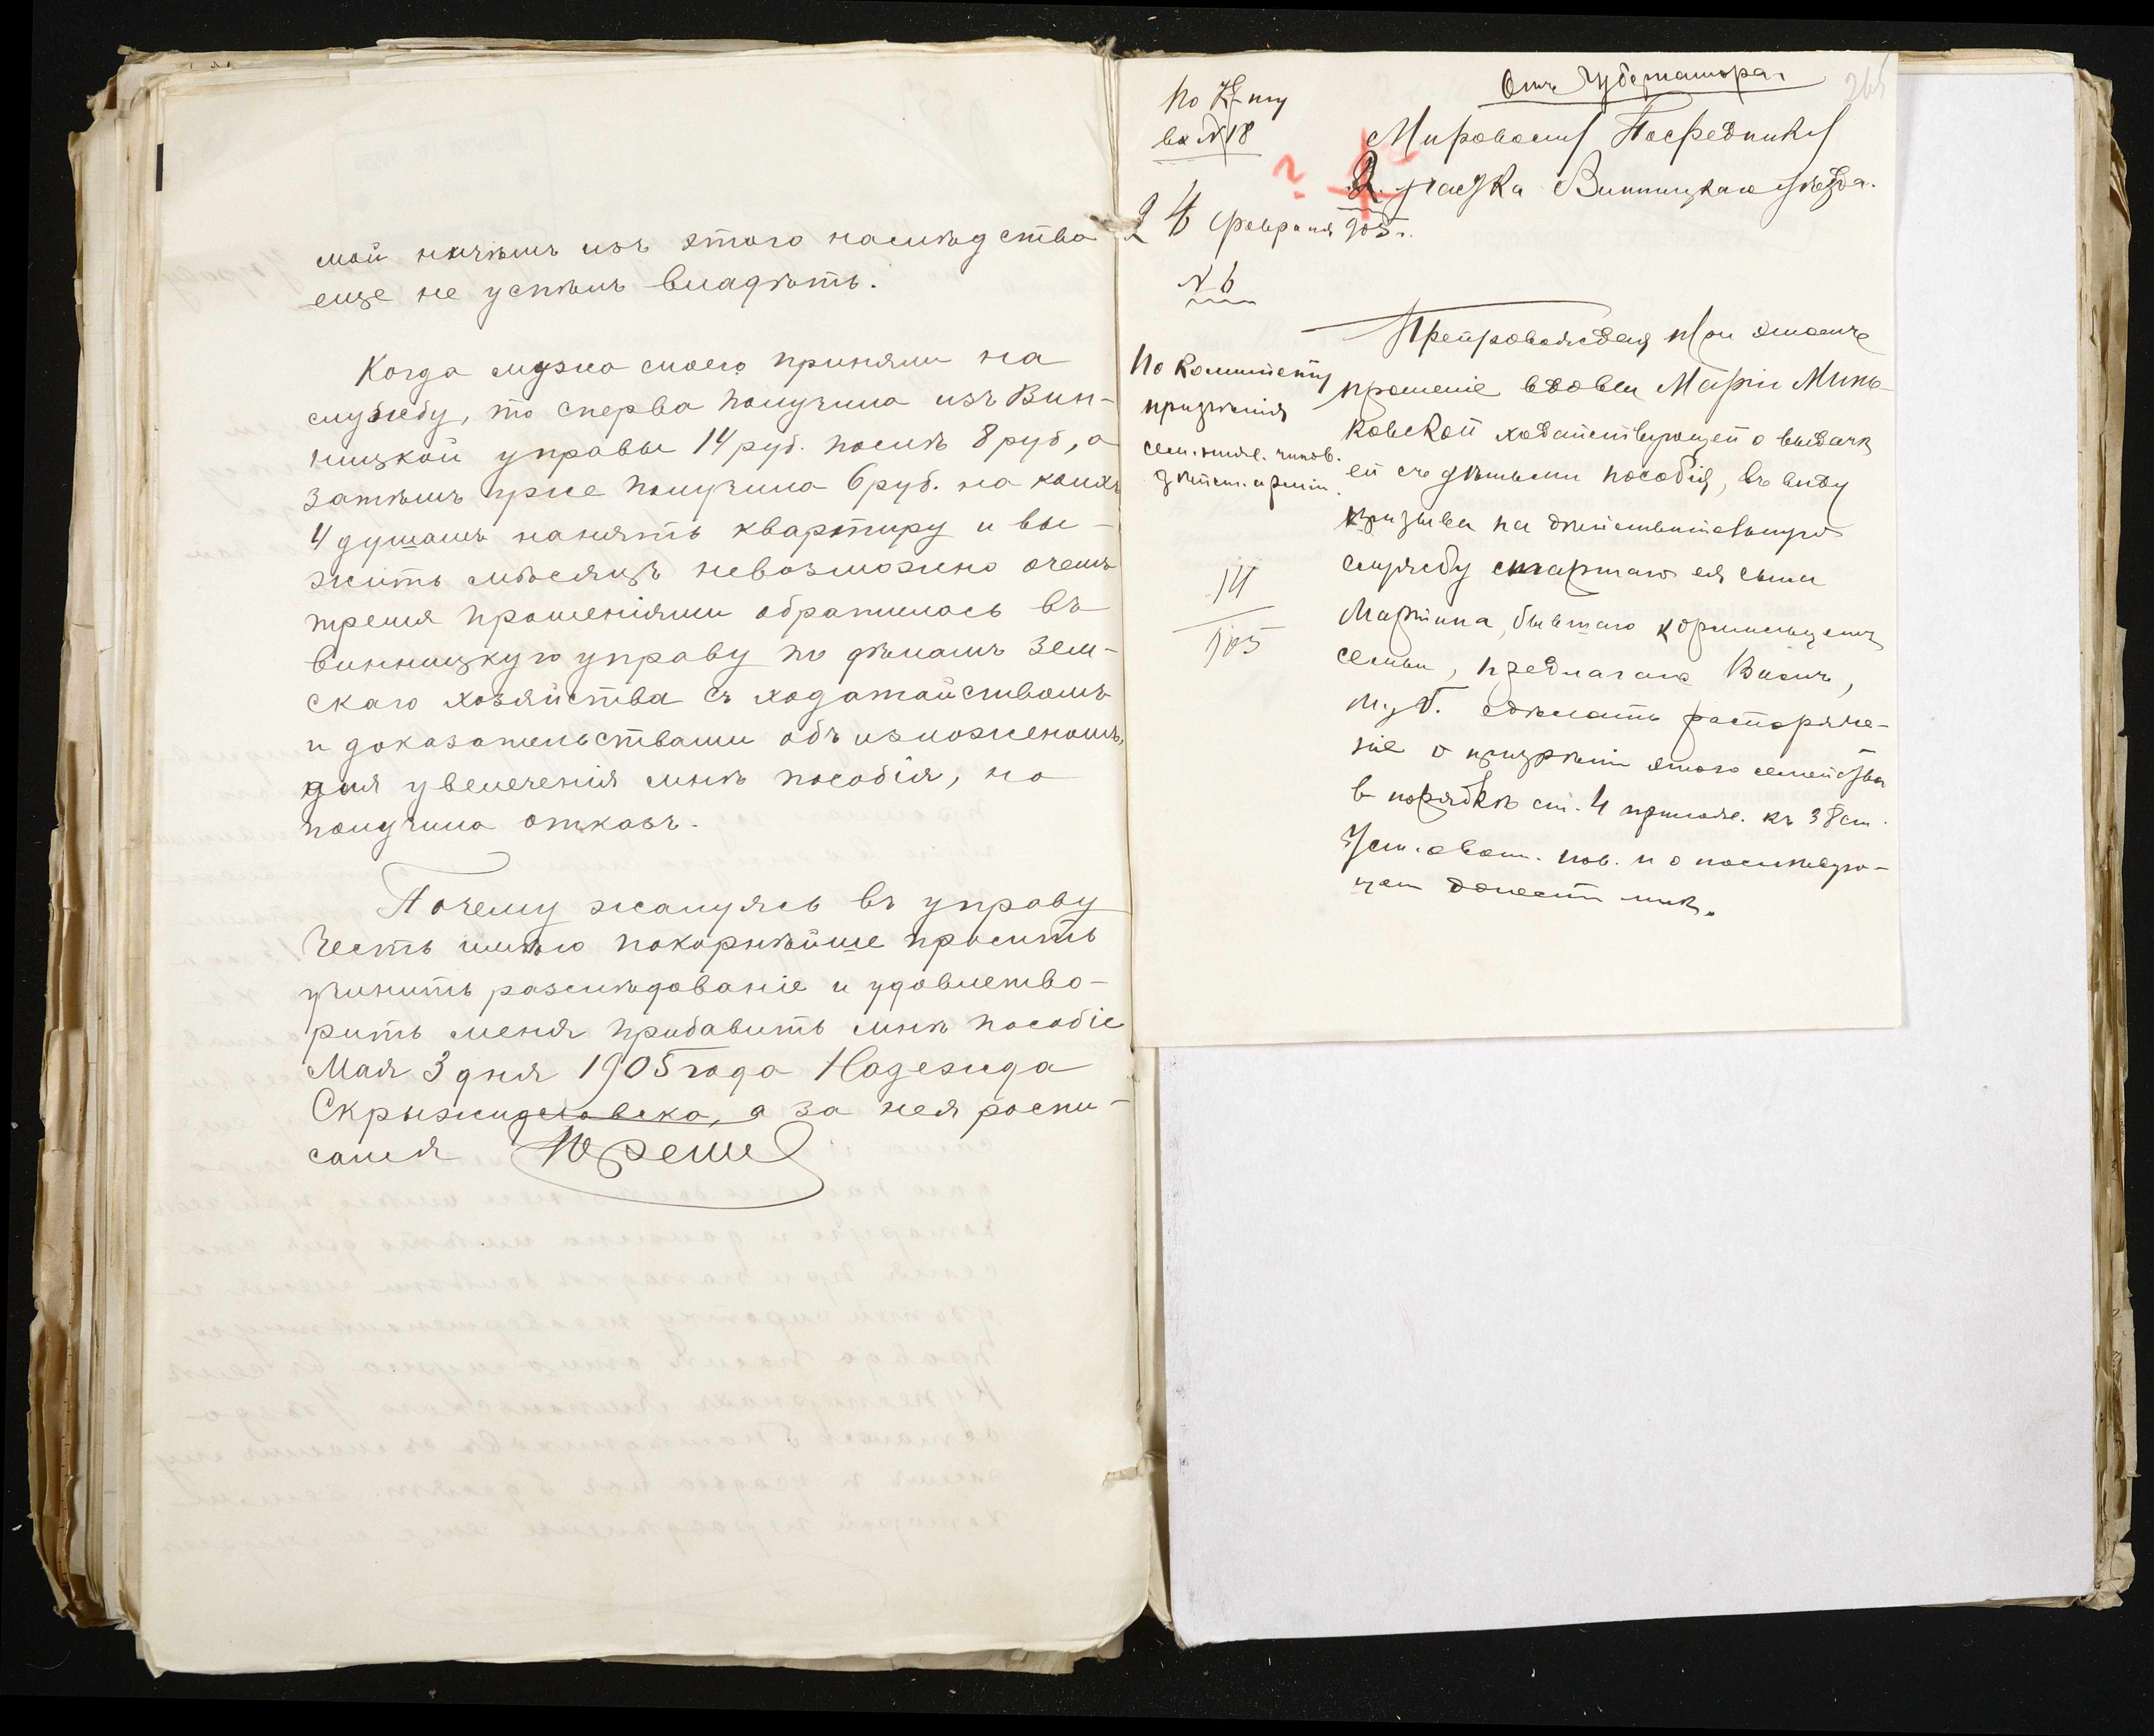 мой ничѣмъ изъ этого наслѣдства
еще не успѣлъ владѣть.
Когда мужа моего приняли на
службу, то сперва получила изъ Вин-
ницкой управы 14 руб. послѣ 8 руб, а
затѣмъ уже получила 6 руб. на коихъ
4 душамъ нанять квартиру и вы-
жить мѣсяцъ невозможно о чемъ
тремя прошеніями обратилась въ
винницкую управу по дѣламъ Зем-
скаго хозяйства съ ходатайствомъ
и доказательствами объ изложеномъ,
для увелеченія мнѣ пособія, но
получила отказъ.
Почему жалуясь въ управу
Честь имѣю покорнѣйше просить
учинить разслѣдованіе и удовлетво-
рить меня прибавить мнѣ пособіе
Мая 3 дня 1905 года Надежда
а за нея роспи-
сался
Отъ Губернатора.
265
По К-ту
вх № 18
Мировому Посреднику
2 участка Винницкаго уѣзда.
24 февраля 905 г.
№ 6
По Комитету
призрѣнія
сем. нижн. чинов.
дѣйст. арміи.
14
905
Препровождая при этомъ
прошеніе вдовы Маріи Минь-
ковской ходатайствующей о выдачѣ
ей съ дѣтьми пособія, въ виду
призыва на дѣйствительную
службу старшаго ея сына
Мартина, бывшаго кормильцемъ
семьи, предлагаю Вамъ,
М. Г. сдѣлать распоряже-
ніе о призрѣніи этого семейства
в порядкѣ ст. 4 прилож. къ 38 ст.
Уст. о воин. пов. и о послѣдую-
щем донести мнѣ.